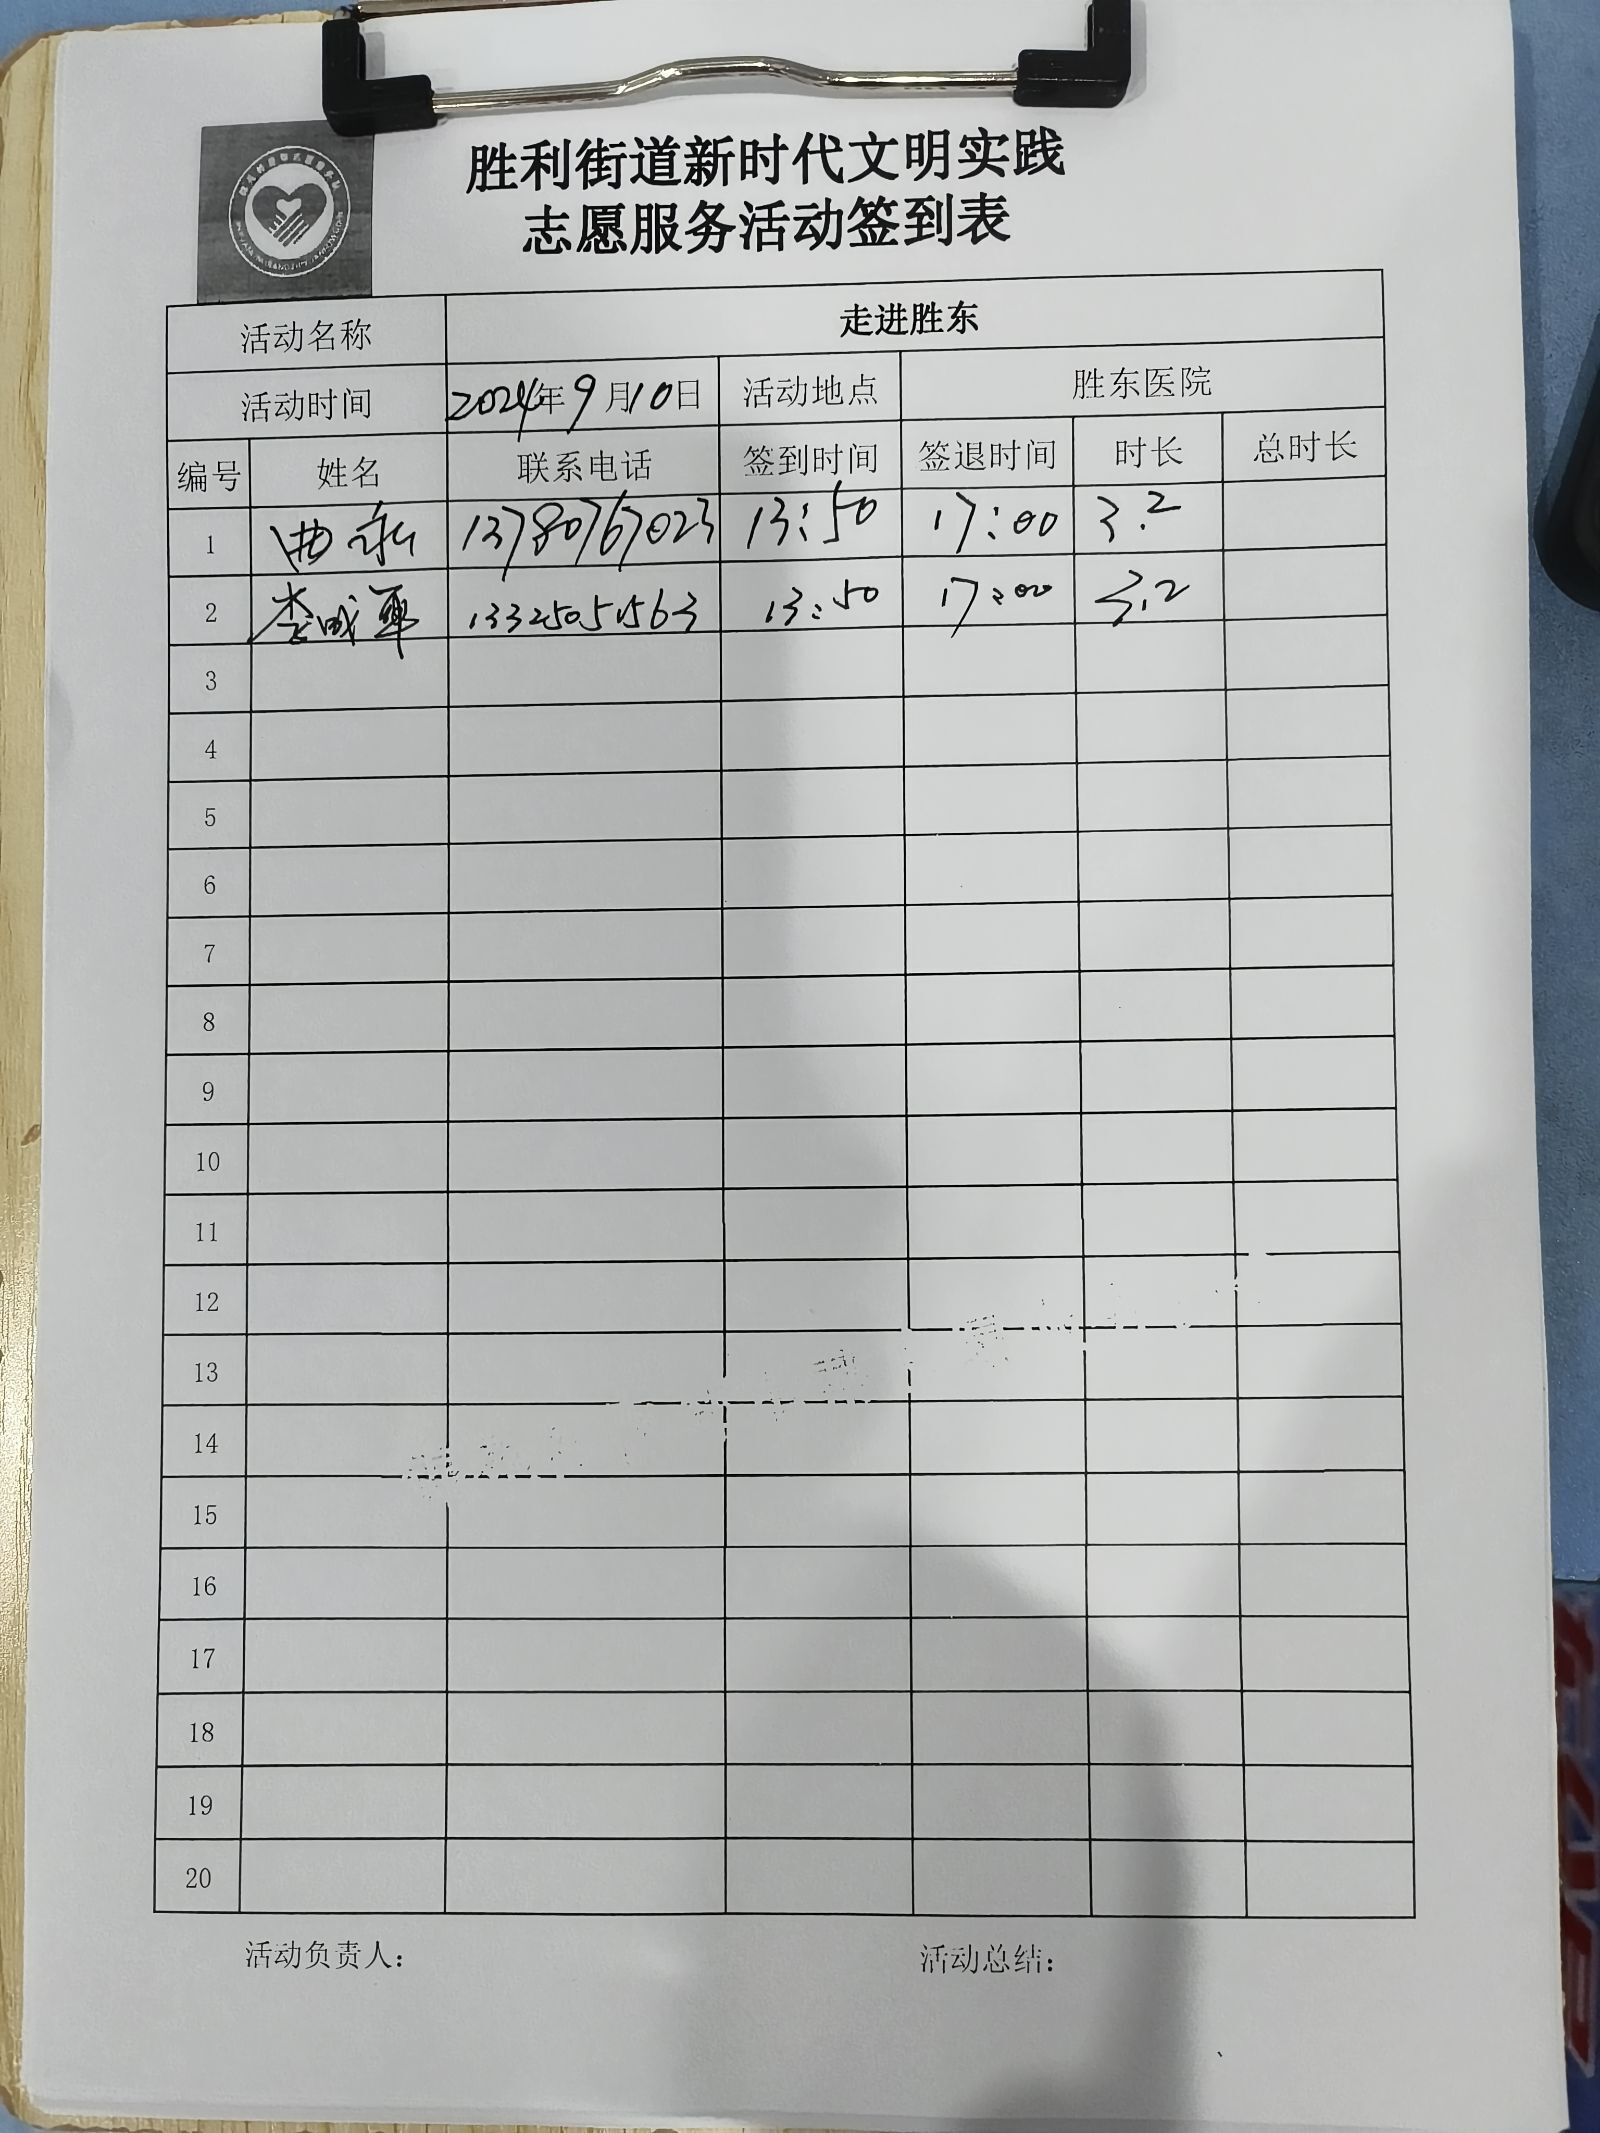 胜利街道新时代文明实践
志愿服务活动签到表
活动名称 走进胜东
活动时间 2024年9月10日 活动地点 胜东医院
编号 姓名 联系电话 签到时间 签退时间 时长 总时长
1 13780767023 13:50 17:00 3.2
2 李成军 13325051563 13:50 17:00 3.2
3
4
5
6
7
8
9
10
11
12
13
14
15
16
17
18
19
20
活动负责人: 活动总结: